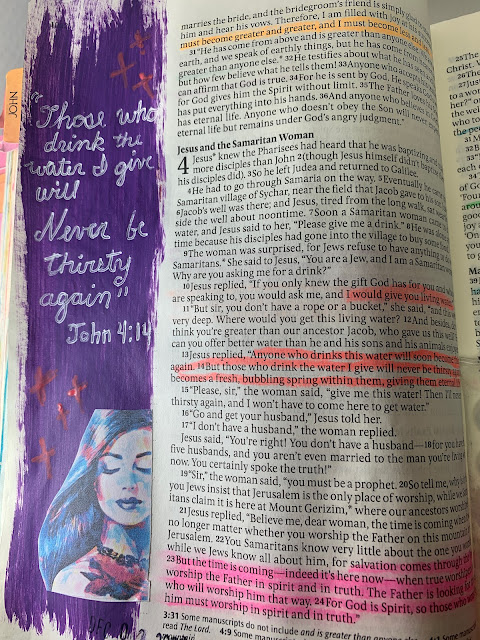 marries the bride, and the bridegroom's friend is simply glad
him and hear his vows. Therefore, I am filled with joy at
must become greater and greater, and I must become less and less.
31 "He has come from above and is greater than anyone else.
earth, and we speak of earthly things, but he has come from
greater than anyone else. 32 He testifies about what he has
but how few believe what he tells them! 33 Anyone who accepts
can affirm that God is true. 34 For he is sent by God. He speaks
for God gives him the Spirit without limit. 35 The Father loves
has put everything into his hands. 36 And anyone who believes in
has eternal life. Anyone who doesn't obey the Son will never
eternal life but remains under God's angry judgment."
Jesus and the Samaritan Woman
4 Jesus knew the Pharisees had heard that he was baptizing and
more disciples than John 2 (though Jesus himself didn't baptize
his disciples did). 3 So he left Judea and returned to Galilee.
4 He had to go through Samaria on the way. 5 Eventually he came
Samaritan village of Sychar, near the field that Jacob gave to his
6 Jacob's well was there; and Jesus, tired from the long walk, sat
side the well about noontime. 7 Soon a Samaritan woman came
water, and Jesus said to her, "Please give me a drink." 8 He was
time because his disciples had gone into the village to buy some
9 The woman was surprised, for Jews refuse to have anything
Samaritans. She said to Jesus, "You are a Jew, and I am a Samaritan
Why are you asking me for a drink?"
10 Jesus replied, "If you only knew the gift God has for you and
are speaking to, you would ask me, and I would give you living
11 "But sir, you don't have a rope or a bucket," she said, "and
very deep. Where would you get this living water? 12 And besides,
think you're greater than our ancestor Jacob, who gave us this
can you offer better water than he and his sons and his animals
13 Jesus replied, "Anyone who drinks this water will soon
again. 14 But those who drink the water I give will never be thirsty
becomes a fresh, bubbling spring within them, giving them eternal
15 "Please, sir," the woman said, "give me this water! Then I'll
thirsty again, and I won't have to come here to get water."
16 "Go and get your husband," Jesus told her.
17 "I don't have a husband," the woman replied.
Jesus said, "You're right! You don't have a husband— 18 for you
five husbands, and you aren't even married to the man you're
now. You certainly spoke the truth!"
19 "Sir," the woman said, "you must be a prophet. 20 So tell me, why
you Jews insist that Jerusalem is the only place of worship, while we
itans claim it is here at Mount Gerizim, where our ancestors
21 Jesus replied, "Believe me, dear woman, the time is coming
no longer matter whether you worship the Father on this mountain
Jerusalem. 22 You Samaritans know very little about the one you
while we Jews know all about him, for salvation comes through
23 But the time is coming—indeed it's here now—when true
worship the Father in spirit and in truth. The Father is looking
who will worship him that way. 24 For God is Spirit, so those who
him must worship in spirit and in truth."
3:31 Some manuscripts do not include and is greater than anyone else.
read The Lord. 4:9 Some
JOHN
"Those who
drink the
water I give
will
Never be
thirsty
again"
John 4:14